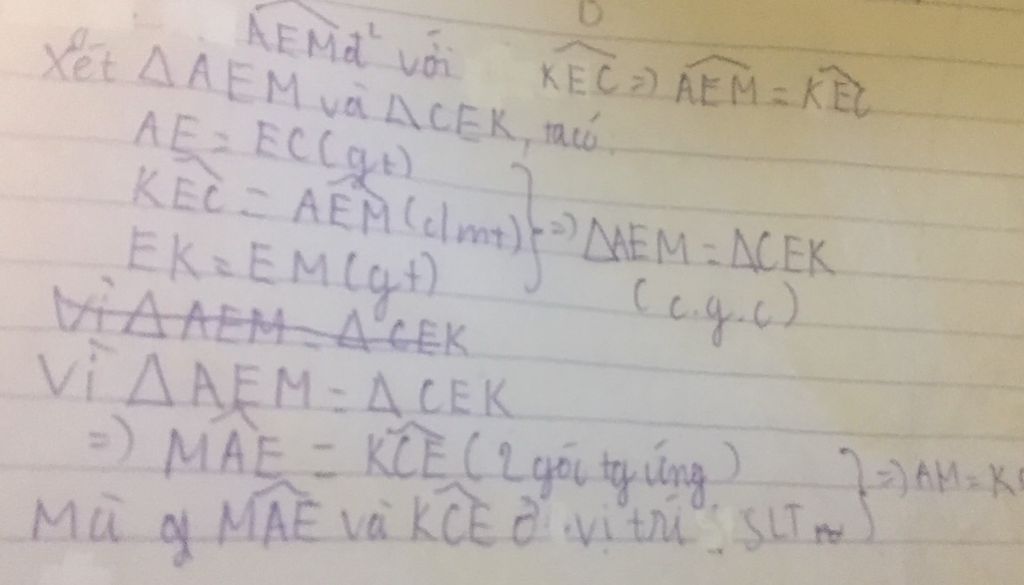 \widehat{AEM} đ² với \widehat{KEC} => \widehat{AEM} = \widehat{KEC}
Xét ΔAEM và ΔCEK, ta có
AE = EC (gt)
\widehat{KEC} = \widehat{AEM} (clmt) } => ΔAEM = ΔCEK
EK = EM (gt) (c.g.c)
Vì ΔAEM = ΔCEK
Vì ΔAEM = ΔCEK
=) \widehat{MAE} = \widehat{KCE} (2 gói tg ứng)
Mà \widehat{MAE} và \widehat{KCE} ở vị trí : SLT } => AM = K